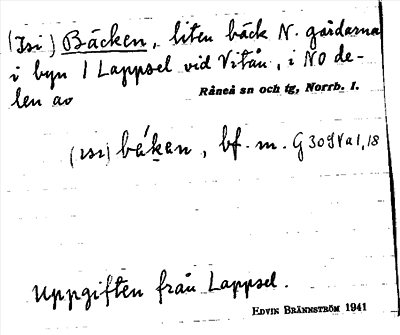 (Isi) Bäcken, liten bäck N. gårdarna
i byn 1 Lappsel vid Vitån, i NO de-
len av Råneå sn och tg, Norrb. l.
(ısı) béken, bf. m. G 309 Va 1, 18
Uppgiften från Lappsel.
EDVIN BRÄNNSTRÖM 1941